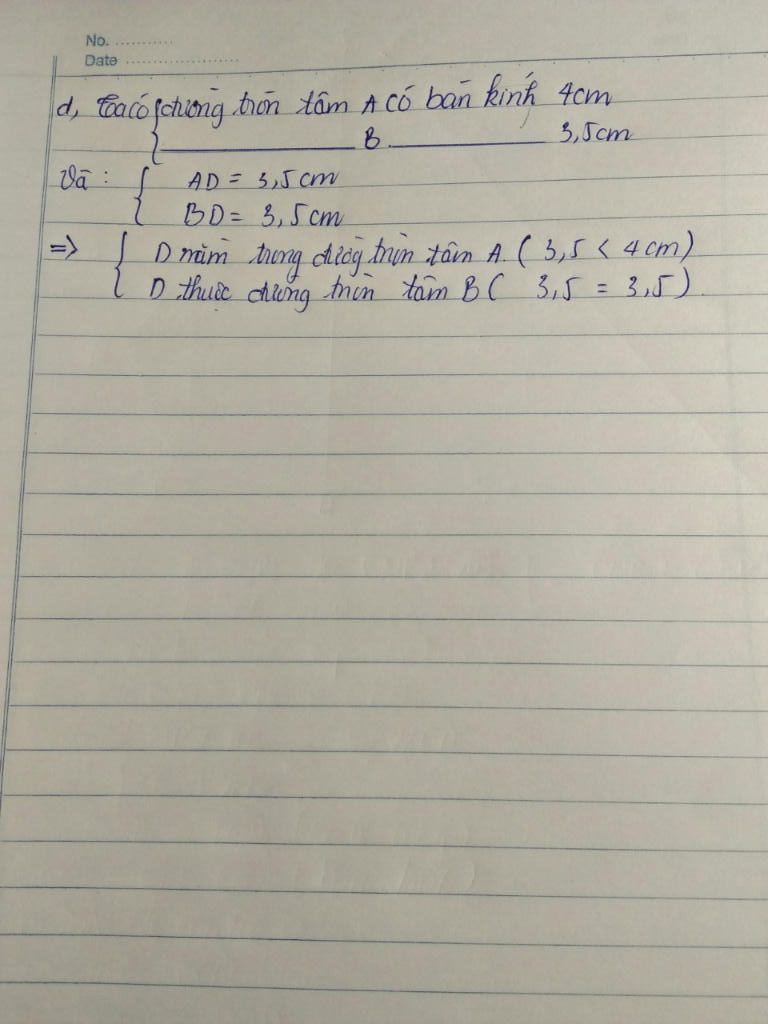 No. ............
Date ........................
d, Ta có { đường tròn tâm A có bán kính 4cm
{ ________ B ________ 3,5cm
Và : { AD = 3,5cm
{ BD = 3,5cm
=> { D nằm trong đường tròn tâm A. ( 3,5 < 4cm)
{ D thuộc đường tròn tâm B ( 3,5 = 3,5).